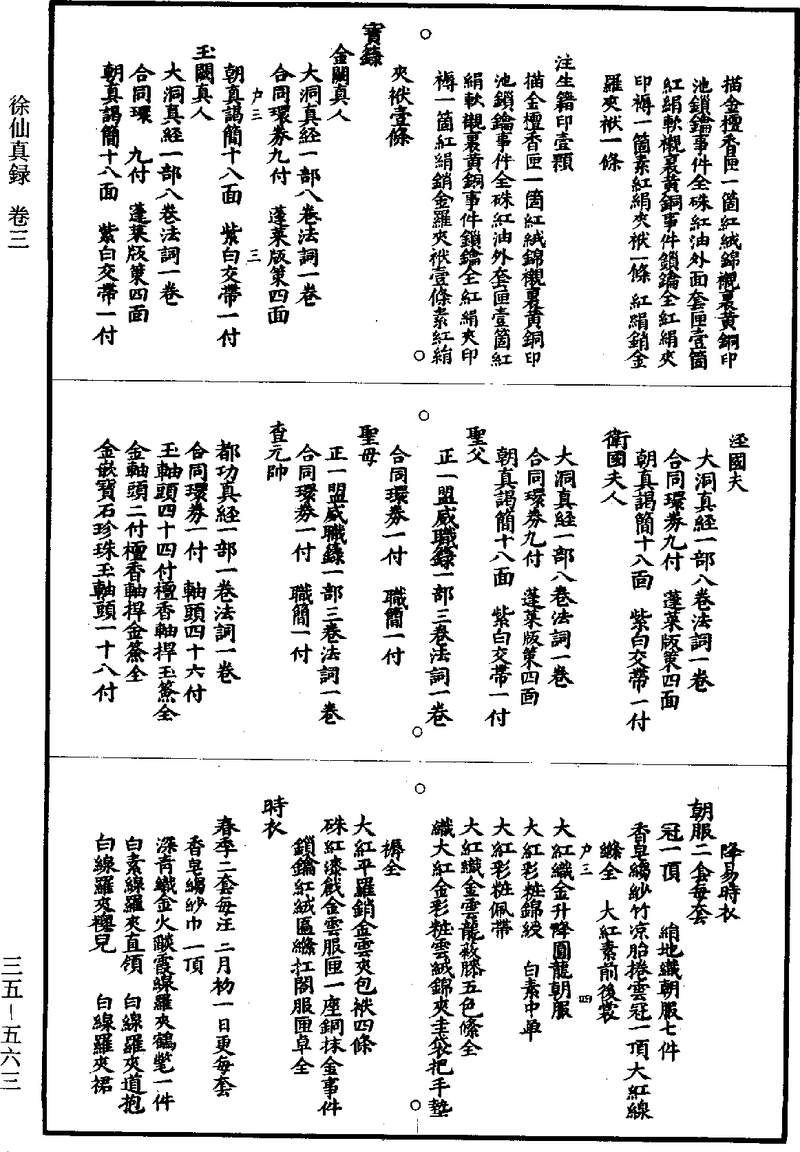 徐仙真録 卷三
描金檀香匣一箇紅絨錦襯裏黃銅印
池鎖鑰事件全硃紅油外面套匣壹箇
紅絹軟襯裏黃銅事件鎖鑰全紅絹夾
印褥一箇素紅絹夾袱一條 紅絹銷金
羅夾袱一條
注生籍印壹顆
描金檀香匣一箇紅絨錦襯裏黃銅印
池鎖鑰事件全硃紅油外套匣壹箇紅
絹軟襯裏黃銅事件鎖鑰全紅絹夾印
褥一箇紅絹銷金羅夾袱壹條素紅絹
夾袱壹條
寳籙
金闕真人
大洞真経一部八巻法詞一巻
合同環劵九付 蓬萊版策四面
户三 三
朝真謁簡十八面 紫白交帶一付
玉闕真人
大洞真経一部八巻法詞一巻
合同環 九付 蓬萊版策四面
朝真謁簡十八面 紫白交帶一付
涇國夫
大洞真経一部八巻法詞一巻
合同環劵九付 蓬萊版策四面
朝真謁簡十八面 紫白交帶一付
衛國夫人
大洞真経一部八巻法詞一巻
合同環劵九付 蓬萊版策四面
朝真謁簡十八面 紫白交帶一付
聖父
正一盟威職籙一部三巻法詞一巻
合同環劵一付 職簡一付
聖母
正一盟威職籙一部三巻法詞一巻
合同環劵一付 職簡一付
查元帥
都功真経一部一巻法詞一巻
合同環劵一付 軸頭四十六付
玉軸頭四十四付檀香軸捍玉簽全
金軸頭二付檀香軸捍金簽全
金嵌寳石珍珠玉軸頭一十八付
降易時衣
朝服二套每套
冠一頂 絹地織朝服七件
香皂縐紗竹凉胎捲雲冠一頂大紅線
縧全 大紅素前後裳
户三 四
大紅織金升降團龍朝服
大紅彩粧錦綬 白素中单
大紅彩粧佩帶
大紅織金雲龍蔽膝五色絛全
織大紅金彩粧雲絨錦夾圭袋把手墊
褥全
大紅平羅銷金雲夾包袱四條
硃紅漆戧金雲服匣一座銅抹金事件
鎖鑰紅絨匾縧扛閣服匣卓全
時衣
春季二套每迬二月初一日更每套
香皂縐紗巾一頂
深青織金火燄霞線羅夾鶴氅一件
白素線羅夾直領 白線羅夾道抱
白線羅夾襖兒 白線羅夾裙
三五—五六三